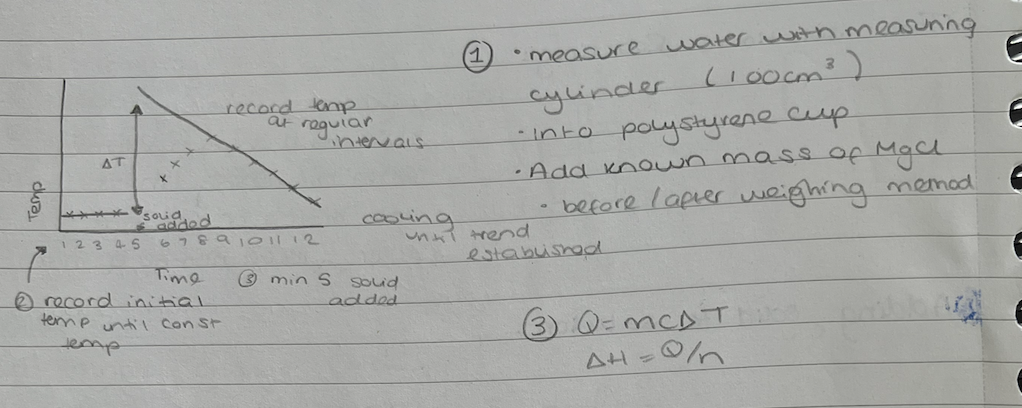 ① · measure water with measuring
cylinder (100cm³)
· into polystyrene cup
· Add known mass of MgCl
· before / after weighing method
record temp
at regular
intervals
ΔT
Temp
solid
added
cooling
until trend
established
1 2 3 4 5 6 7 8 9 10 11 12
Time ③ min 5 solid
added
② record initial
temp until const
temp
③ Q=mcΔT
ΔH = Q/n